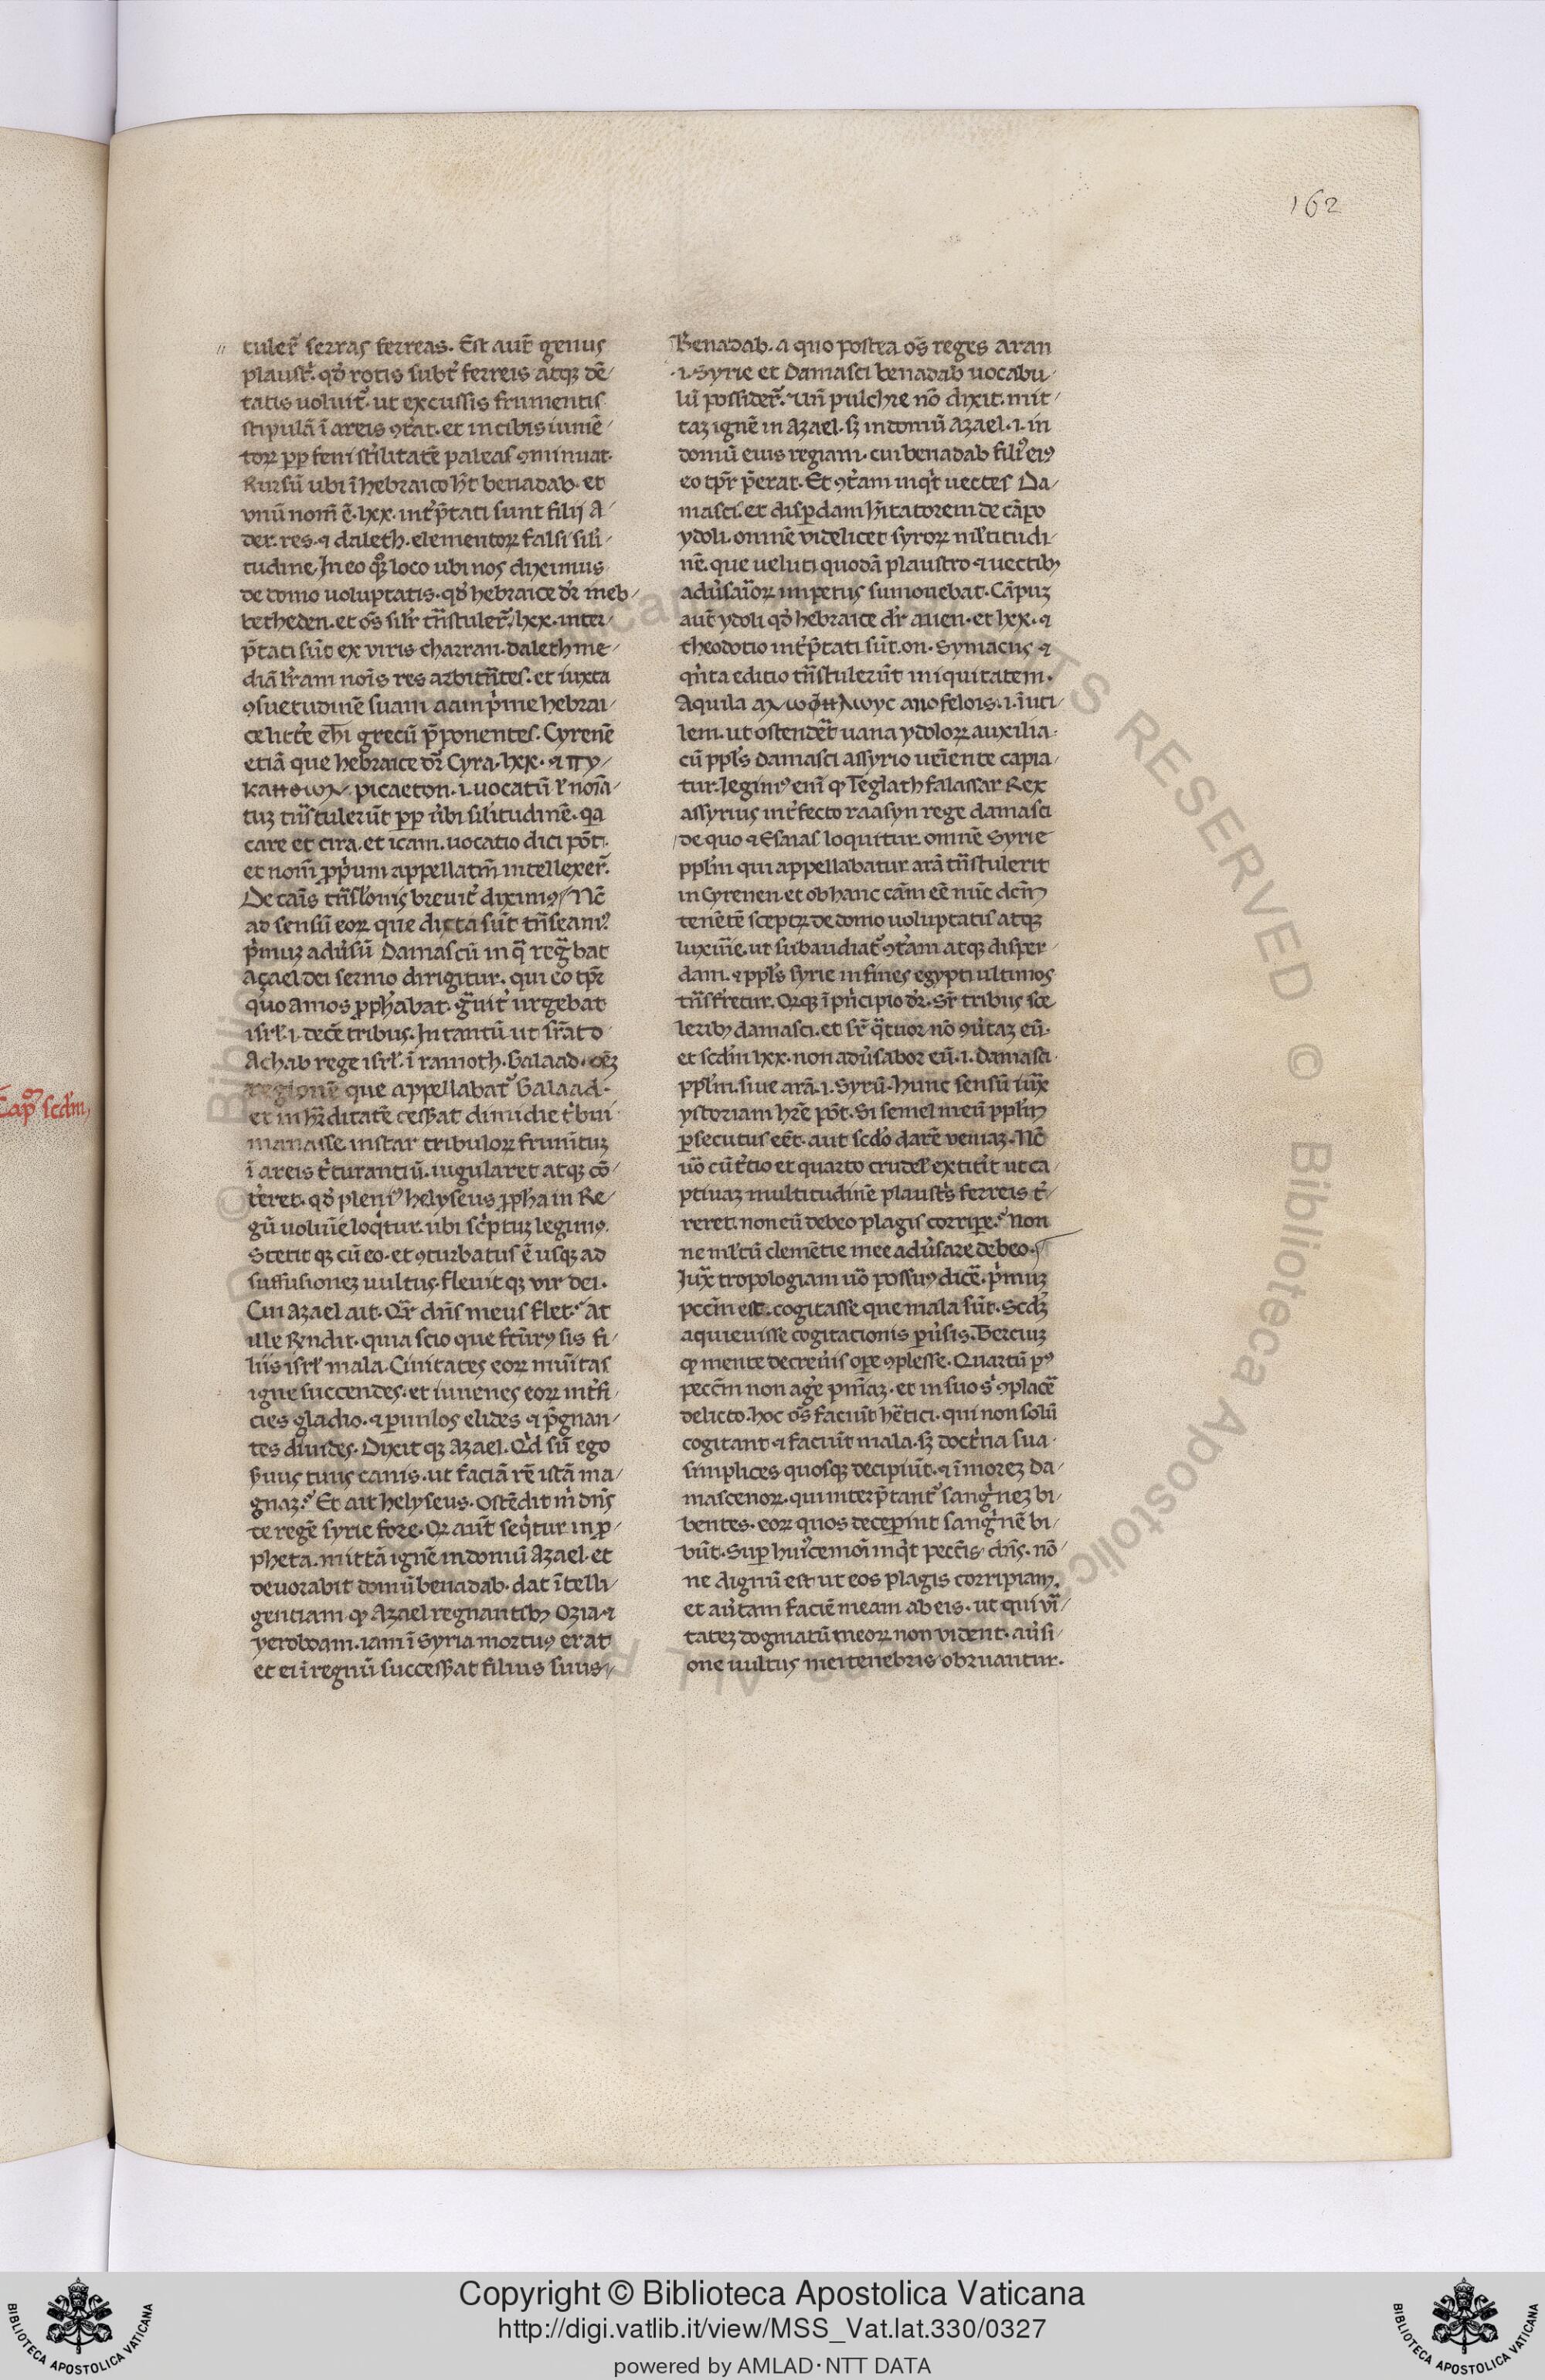 162
tuler̄ serras ferreas. Est aut̄ genus
plaustr̄. qd̓ rotis subt̓ ferreis atqꝫ dē/
tatis uoluit᷑. ut excussis frumentis
stipulā ī areis ꝯt̓at. et in cibis iumē/
toꝝ pp̄ feni st̓ilitatē paleas ꝯminuat.
Rursū ubi ī hebraico h̄t benadab. et
vnū nom̄ ē. lxx. int̓p̄tati sunt filij A/
der. res. ⁊ daleth. elementoꝝ falsi sili/
tudine. In eo qꝫ loco ubi nos diximus
de domo uoluptatis. qd̓ hebraice dr̄ meb/
betheden. et oēs silr̄ tn̄stuler̄. lxx. inter/
p̄tati sūt ex viris charran. daleth me/
diā lr̄am nom̄s res arbitn̄tes. et iuxta
ꝯsuetudinē suam aain p̓me hebrai/
ce litt̓e chi grecū p̄ponentes. Cyrenē
etiā que hebraice dr̄ Cyra. lxx. ⁊ πγ/
picaeton. i. uocatū ł noīa/
tuꝫ tn̄stulerūt pp̄ ūbi silitudinē. qa
care et cira. et icam. uocatio dici pōt.
et nom̄ pp̓um appellatm̄ intellexer̄.
De cāis tn̄sl̓onis breuit̓ diximꝰ. Nc̄
ad sensū eoꝝ que dicta sūt tn̄seamꝰ.
p̓muꝫ adu̓sū Damascū in qͣ regͣbat
açael dei sermo dirigitur. qui eo tp̄r
quo amos ꝓph̓abat. gͣuit̓ urgebat
isrł. i. decē tribus. In tantū ut sr̄ato
Achab rege isrł. ī ramoth. Galaad. oēꝫ
regionē que appellabat᷑ Galaad.
et in hr̄ditatē cesserat dimidie t̓bui
manasse instar tribuloꝝ frum̄tuꝫ
ī areis t̓turantiū. iugularet atqꝫ cō/
t̓eret. qd̓ pleniꝰ helyseus ꝓph̓a in Re/
gū uolum̄e loq̓tur. ubi sc̓ptuꝫ legimꝰ.
Stetit qꝫ cū eo. et ꝯturbatus ē usqꝫ ad
suffusioneꝫ uultus. fleuit qꝫ vir dei.
Cui azael ait. Qr̄ dn̄s meus flet? at
ille rn̄dit. quia scio que fc̄urꝰ sis fi/
liis isrł mala. Ciuitates eoꝝ mun̄itas
igne succendes. et iuuenes eoꝝ int̓fi/
cies gladio. ⁊ paruulos elides ⁊ p̄gnan/
tes diuides. Dixit qꝫ azael. Qd̓ sū ego
s̓uus tuus canis. ut faciā rē istā ma/
gnaꝫ? Et ait helyseus. Ostēdit m̓ dn̄s
te regē syrie fore. Qꝝ aut̄ seq̓tur in ꝓ/
pheta. mittā ignē in domū Azael. et
deuorabit domū benadab. dat ītelli/
gentiam ꝙ Azael regnantibꝫ Ozia. ⁊
yeroboam. iam ī Syria mortuꝰ erat
et ei ī regnū successerat filius suus
Benadab. a quo postea oēs reges aran
.i. Syrie et Damasci benadab uocabu/
lū possider̄. Un̄ pulchre nō dixit. mit
taꝫ ignē in azael. sꝫ in domū azael. i. in
domū eius regiam. cui benadab filiꝰ eiꝰ
eo tp̄r p̄erat. Et ꝯt̓am inq̓t uectes Da/
masci. et disp̄dam h̓itatorem de cāpo
ydoli. omnē videlicet syroꝝ mltitudi/
nē. que ueluti quodā plaustro ⁊ uectibꝫ
adu̓saⁱoꝝ impetus sumouebat. Cāpuꝫ
aut̄ ydoli qd̓ hebraice dr̄ auen. et lxx. ⁊
theodotio int̓p̄tati sūt. on. Symacus ⁊
qn̓ta editio tn̄stulerūt iniquitatem.
Aquila anofelois. i. īuti/
lem. ut ostendēt uana ydoloꝝ auxilia.
cū ppl̓s damasci assyrio uēiente capia/
tur. legimꝰ enī ꝙ Teglath falassar Rex
assyrius int̓fecto raasyn rege damasci
de quo ⁊ Esaias loquitur. omnē Syrie
ppl̓m qui appellabatur arā tn̄stulerit
in Cyrenen. et ob hanc cām eē nūc dc̄m
tenētē sceptꝝ de domo uoluptatis atqꝫ
luxurie. ut subaudiat᷑ ꝯt̓am atqꝫ disper/
dam. ⁊ ppl̓s syrie in fines egypti ultimos
tn̄sfretur. Qꝝqꝫ ī pn̓cipio dr̄. Sr̄ tribus sce
leribꝫ damasci. et sr̄ qͣtuor nō ꝯu̓taꝫ eū.
et scd̓m lxx. non adu̓sabor eū. i. damasci
ppl̓m. siue arā. i. Syrū. hunc sensū iuxͣ
ystoriam hr̄e pōt. Si semel meū ppl̓m
ꝑsecutus eēt. aut scd̓o darē veniaꝫ. Nc̄
uo̓ cū t̓tio et quarto crudeł extitit ut ca/
ptiuaꝫ multitudinē plaust̓s ferreis t̓/
reret. non eū debeo plagis corriꝑe? Non
ne mltū clemētie mee adu̓sare debeo.
Juxͣ tropologiam uo̓ possumꝰ dicē. p̓muꝫ
pccm̄ est. cogitasse que mala sūt. Scd̓ꝫ
aquieuisse cogitacionis ꝑu̓sis. Terciuꝫ
ꝙ mente decreu̓is oꝑe ꝯplesse. Quartū pꝰ
peccm̄ non ag̓e pn̄iaꝫ. et in suo s̓ ꝯplacē
delicto. hoc oēs faciūt hēticī. qui non solū
cogitant ⁊ faciūt mala. sꝫ doct̓na sua
simplices quosqꝫ decipiūt. ⁊ ī moreꝫ da
mascenoꝝ. qui interp̄tant᷑ sangn̓eꝫ bi/
bentes. eoꝝ quos deceꝑint sangn̓ē bi/
būt. Suꝑ huiꝰcemōi inq̓t pecc̄is dn̄s. nō/
ne dignū est ut eos plagis corripiam.
et au̓tam faciē meam ab eis. ut qui vī/
tateꝫ dogmatū meoꝝ non vident. au̓si
one uultus mei tenebris obruantur.
Cap̄ scd̓m
Copyright © Biblioteca Apostolica Vaticana
http://digi.vatlib.it/view/MSS_Vat.lat.330/0327
powered by AMLAD·NTT DATA
BIBLIOTECA APOSTOLICA VATICANA
BIBLIOTECA APOSTOLICA VATICANA